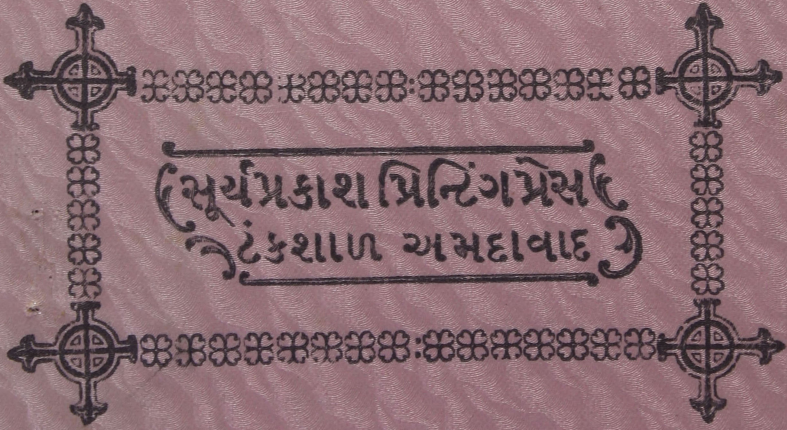 સૂર્યપ્રકાશ પ્રિન્ટિંગ પ્રેસ
ટંકશાળ અમદાવાદ